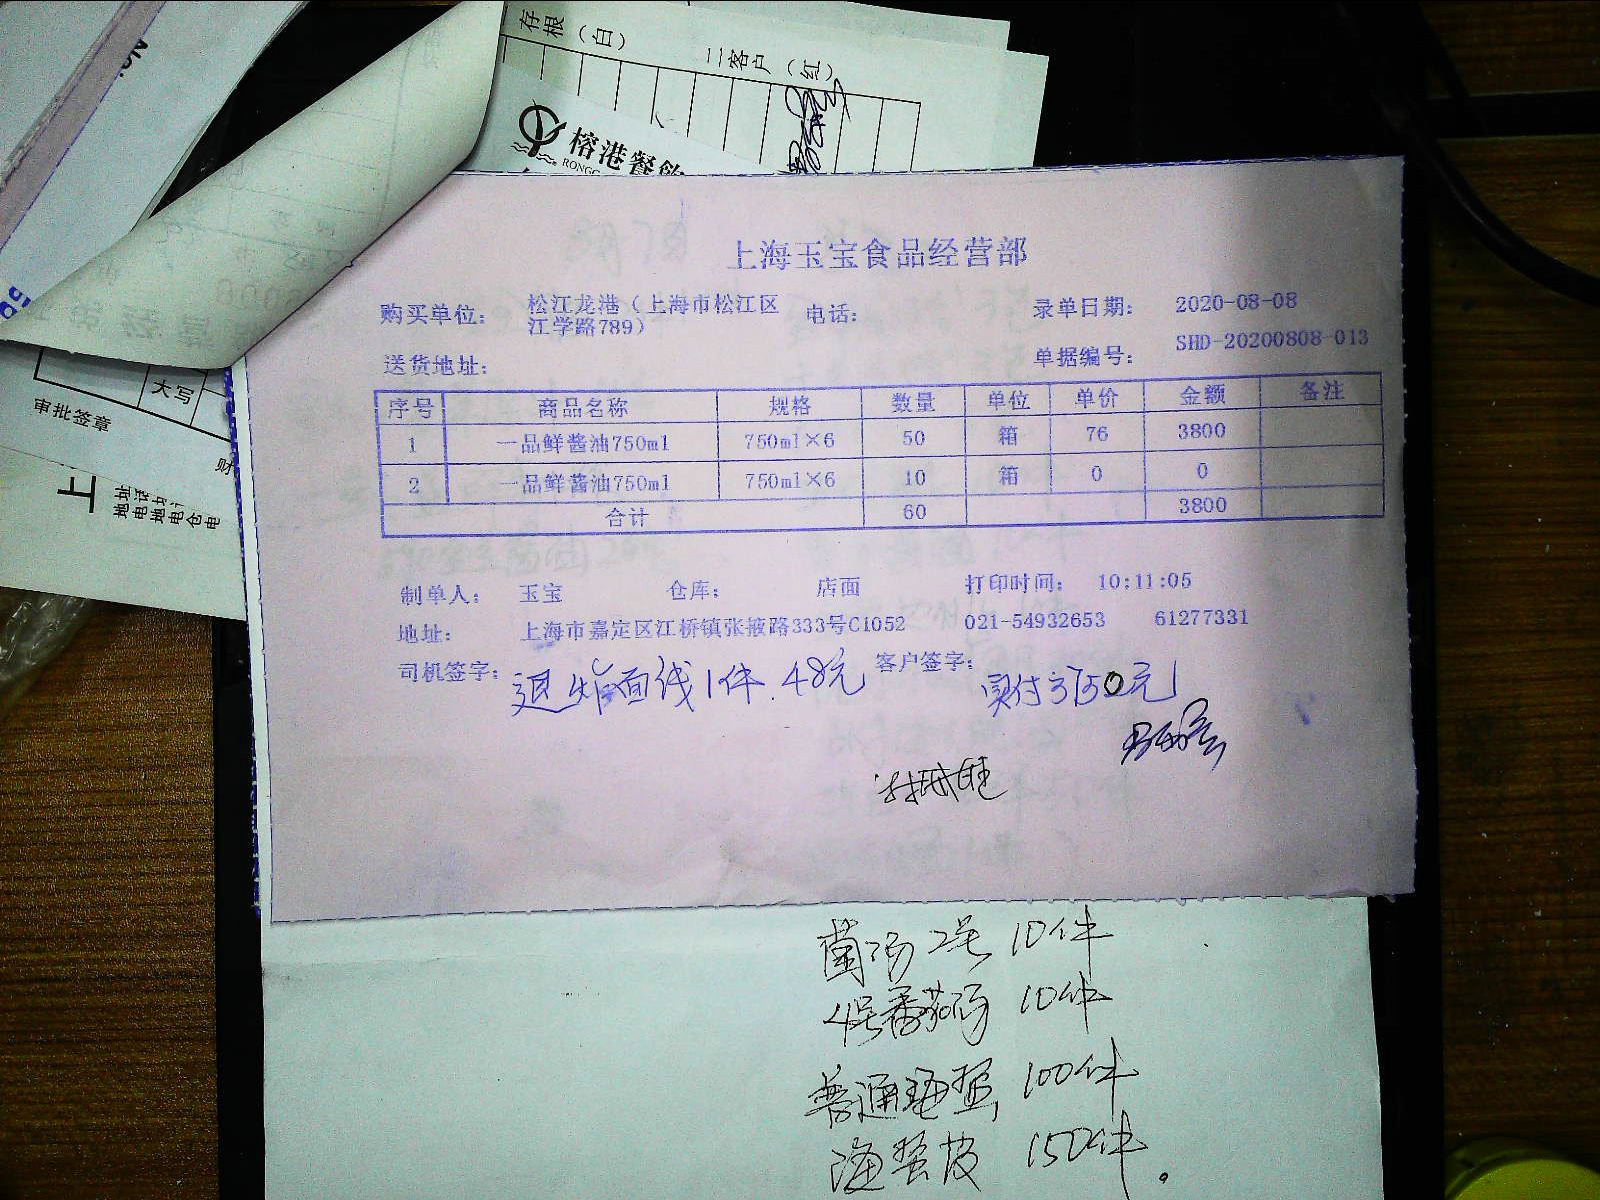 No.
存根（白）
二客户（红）
榕港餐飲
大写
审批签章
财
上
上海玉宝食品经营部
购买单位： 松江龙港（上海市松江区江学路789） 电话： 录单日期： 2020-08-08
送货地址： 单据编号： SHD-20200808-013
序号 商品名称 规格 数量 单位 单价 金额 备注
1 一品鲜酱油750ml 750ml×6 50 箱 76 3800
2 一品鲜酱油750ml 750ml×6 10 箱 0 0
合计 60 3800
制单人： 玉宝 仓库： 店面 打印时间： 10:11:05
地址： 上海市嘉定区江桥镇张掖路333号C1052 021-54932653 61277331
司机签字： 退炸面线1件.48元 客户签字： 实付3750元
菌汤2号 10件
4号番茄汤 10件
普通海蜇 100件
海蜇皮 150件。